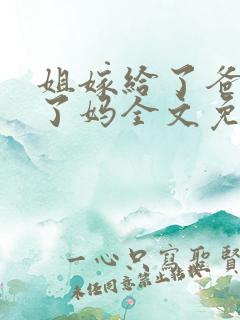 姐嫁給了爸
了妈全文免
一心只寫聖賢
未任同意禁止佶牧